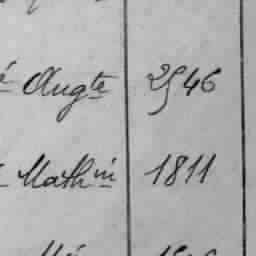 é Augte 2546
Mathin 1811